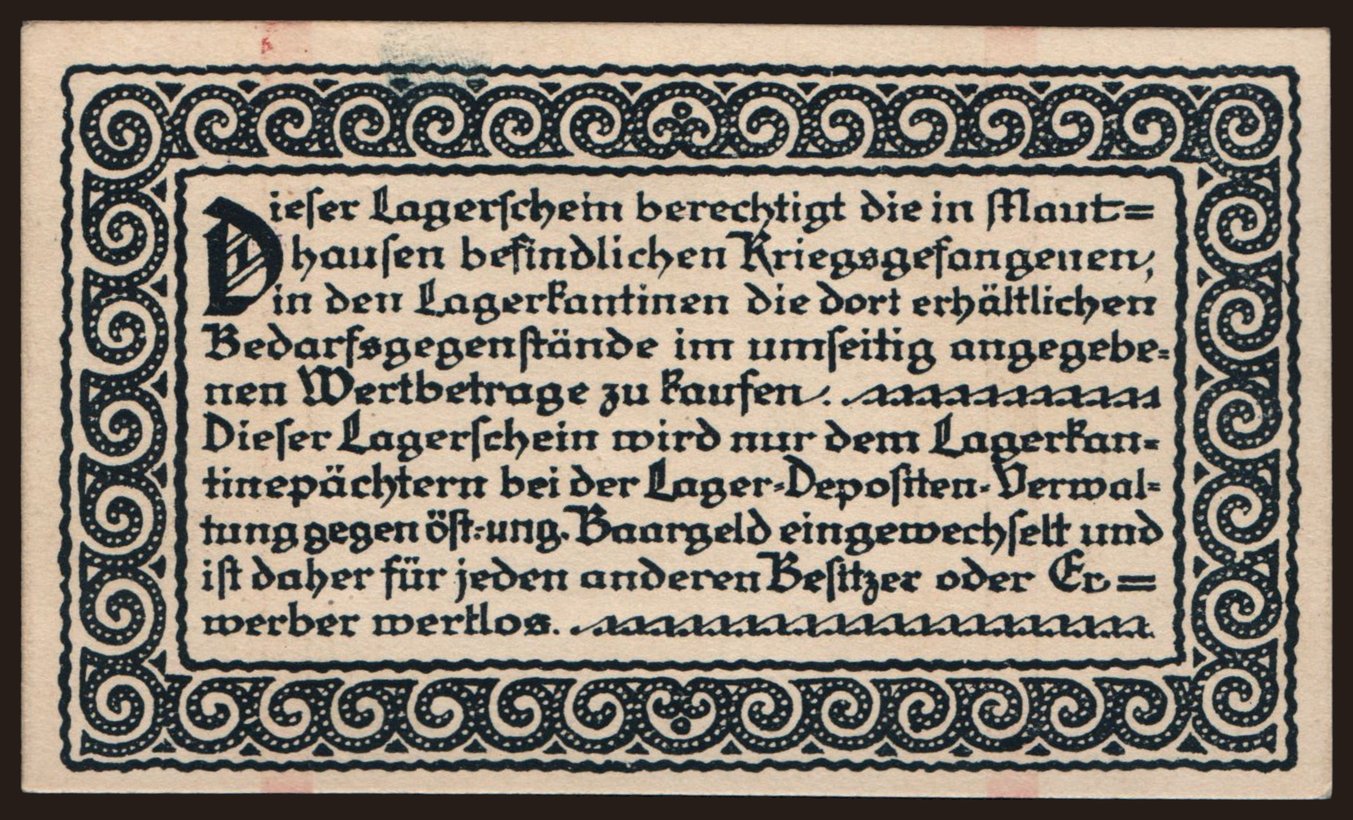 Dieser Lagerschein berechtigt die in Maut=
hausen befindlichen Kriegsgefangenen,
in den Lagerkantinen die dort erhältlichen
Bedarfsgegenstände im umseitig angegebe=
nen Wertbetrage zu kaufen.
Dieser Lagerschein wird nur dem Lagerkan=
tinepächtern bei der Lager-Depositen-Verwal=
tung gegen öst.-ung. Baargeld eingewechselt und
ist daher für jeden anderen Besitzer oder Er=
werber wertlos.